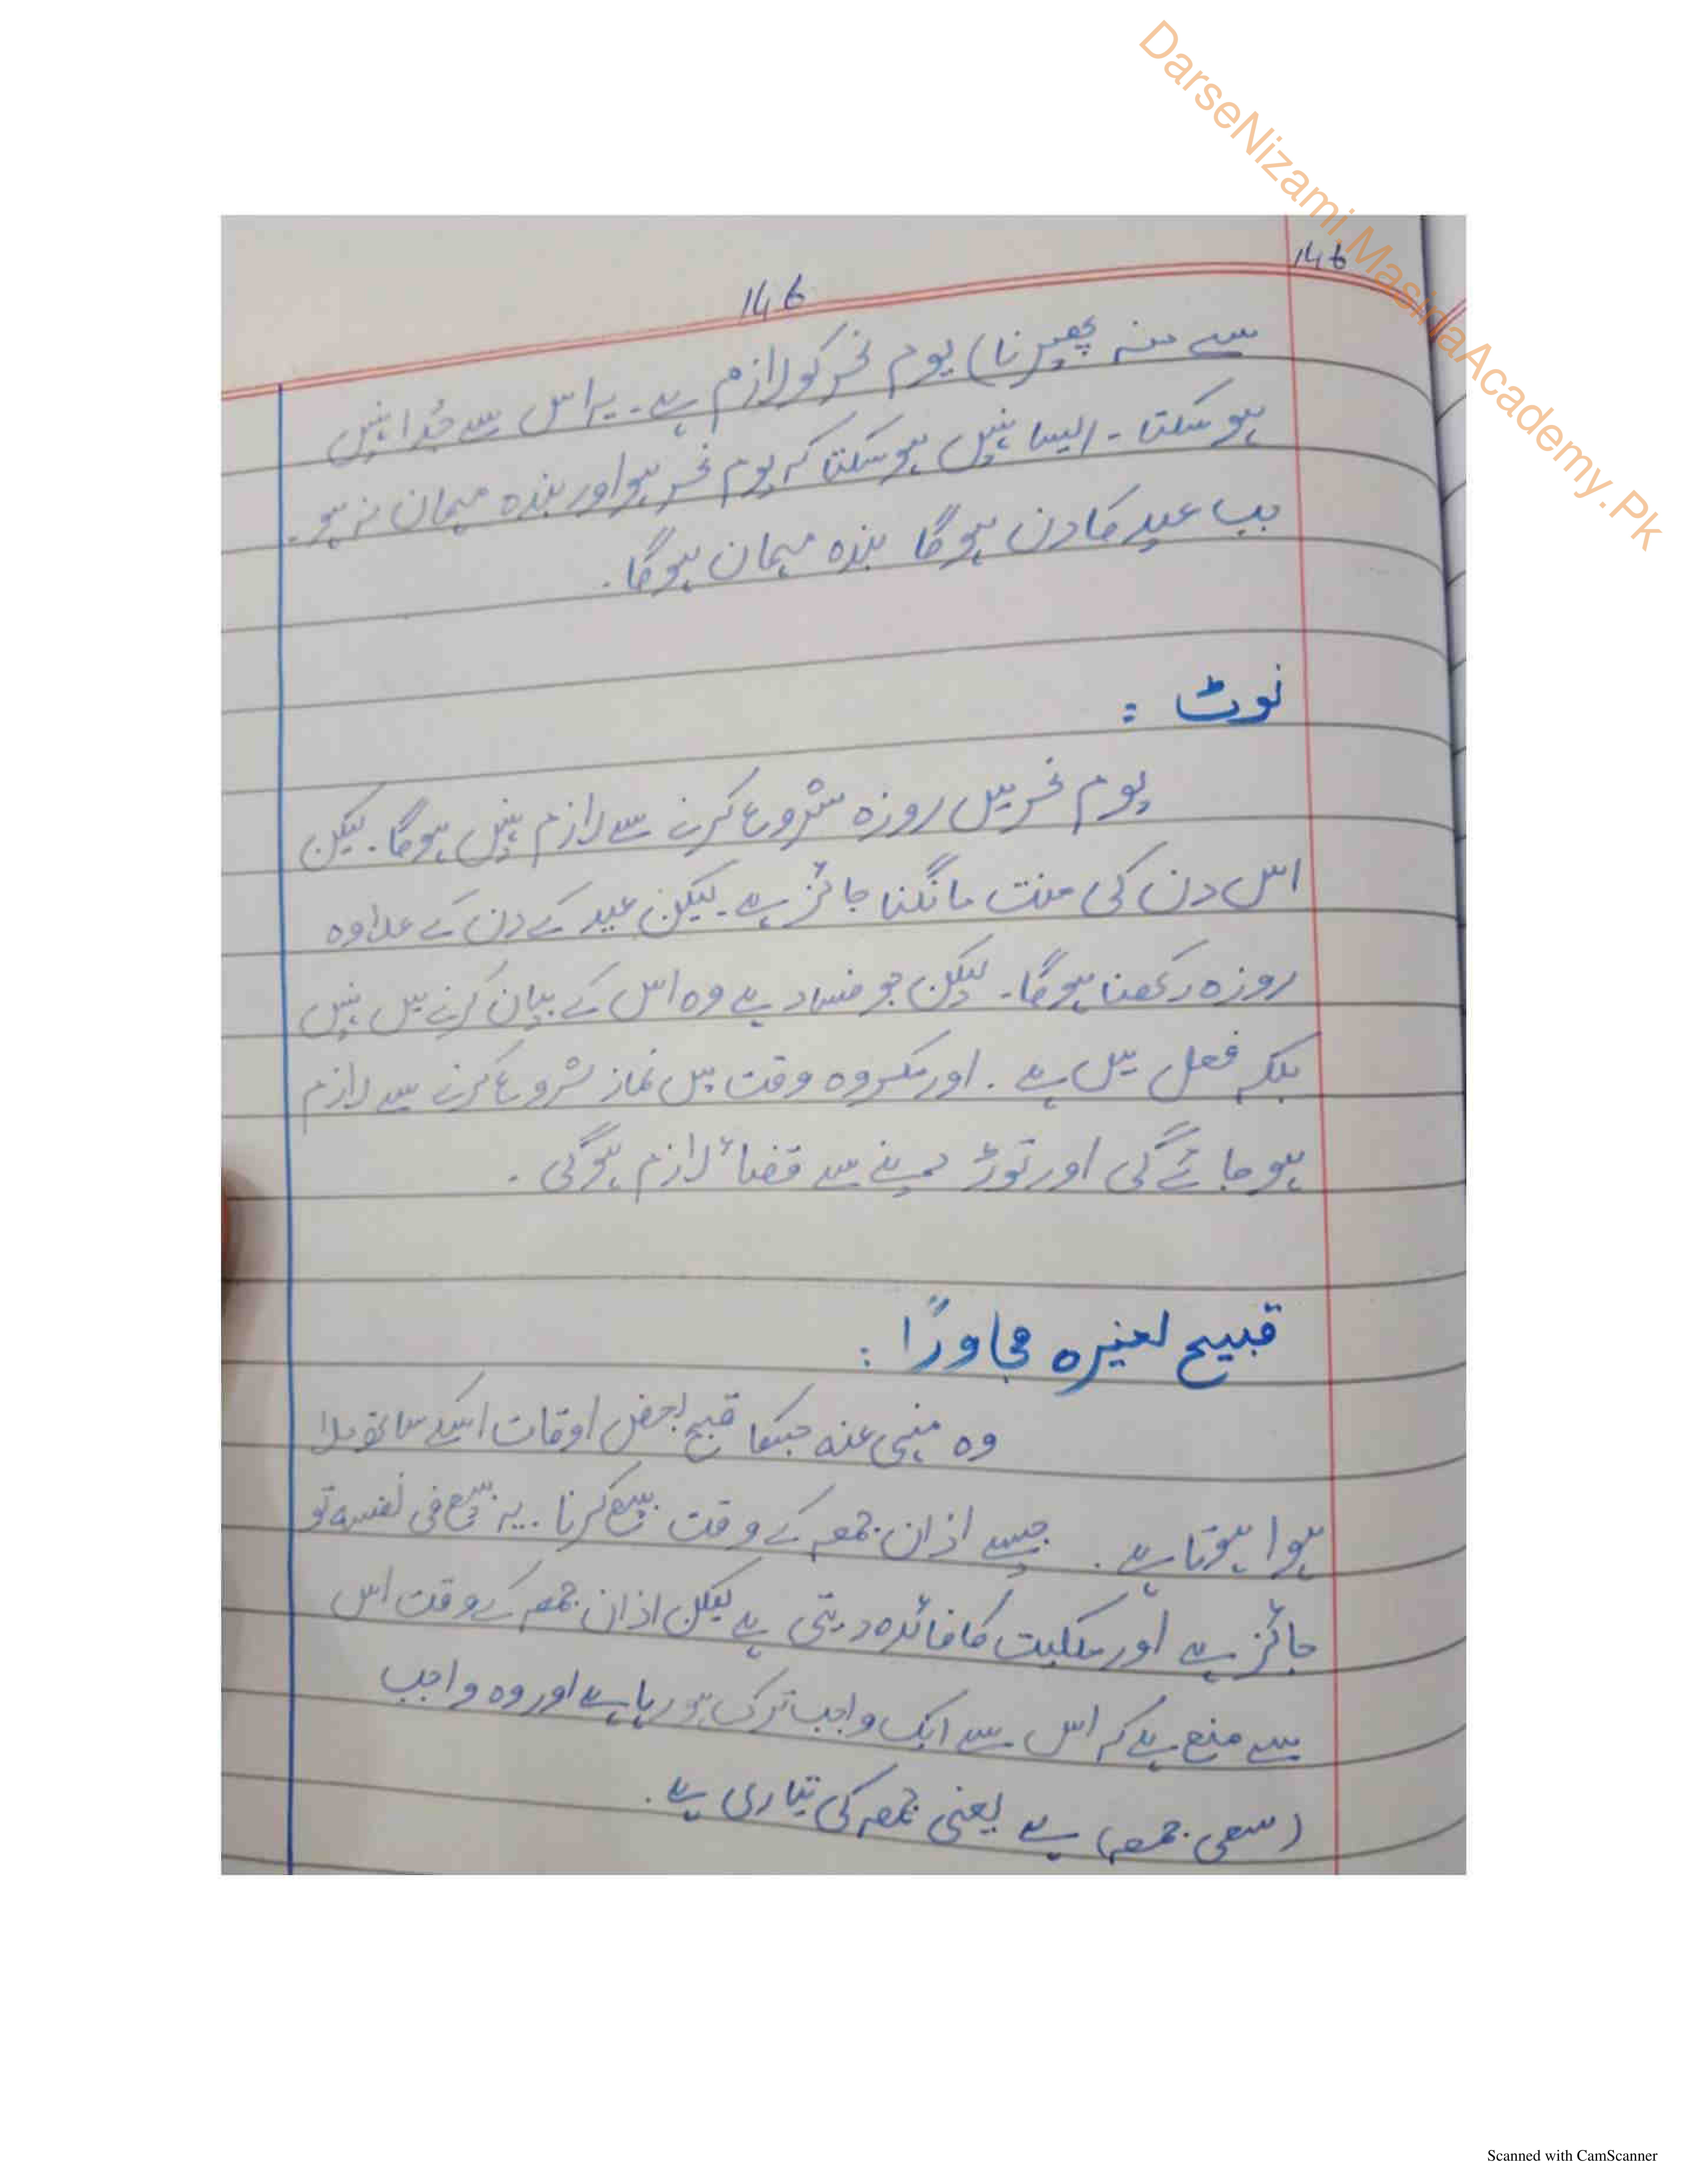 DarseNizami.MasjidaAcademy.Pk
146
146
سے منہ پھیرنا) یوم نحر کو لازم ہے۔ یہ اس سے جُدا نہیں
ہو سکتا۔ ایسا نہیں ہو سکتا کہ یوم نحر ہو اور بندہ مہمان نہ ہو۔
جب عید کا دن ہو گا بندہ مہمان ہو گا۔
نوٹ :
یوم نحر میں روزہ شروع کرنے سے لازم نہیں ہو گا۔ لیکن
اس دن کی منت مانگنا جائز ہے۔ لیکن عید کے دن کے علاوہ
روزہ رکھنا ہو گا۔ لیکن جو فساد ہے وہ اس کے بیان کرنے میں نہیں
بلکہ فعل میں ہے۔ اور مکروہ وقت میں نماز شروع کرنے سے لازم
ہو جائے گی اور توڑ دینے سے قضاء لازم ہو گی۔
قبیح لغیرہ مجاورًا :
وہ منہی عنہ جسکا قبح بعض اوقات اسکے ساتھ ملا
ہوا ہوتا ہے۔ جیسے اذان جمعہ کے وقت بیع کرنا۔ یہ بیع فی نفسہ تو
جائز ہے اور ملکیت کا فائدہ دیتی ہے لیکن اذان جمعہ کے وقت اس
سے منع ہے کہ اس سے ایک واجب ترک ہو رہا ہے اور وہ واجب
(سعی جمعہ) ہے یعنی جمعہ کی تیاری ہے۔
Scanned with CamScanner